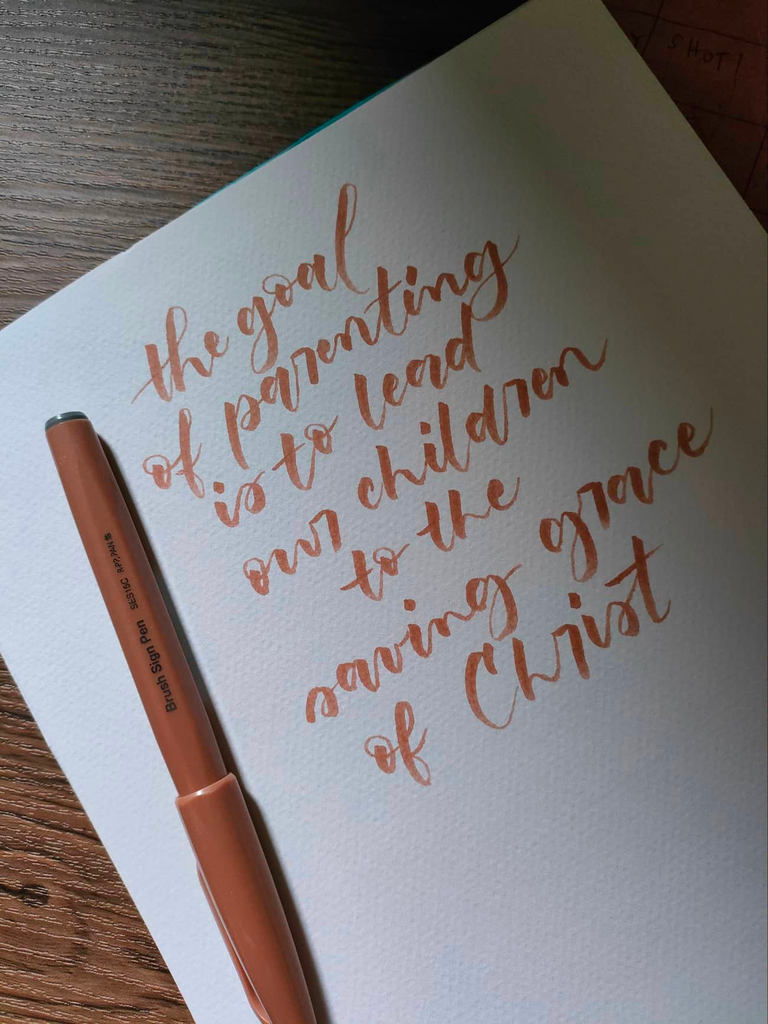 the goal
of parenting
is to lead
our children
to the
saving grace
of Christ
Brush Sign Pen SES15C APP.JAPAN
SHOT!